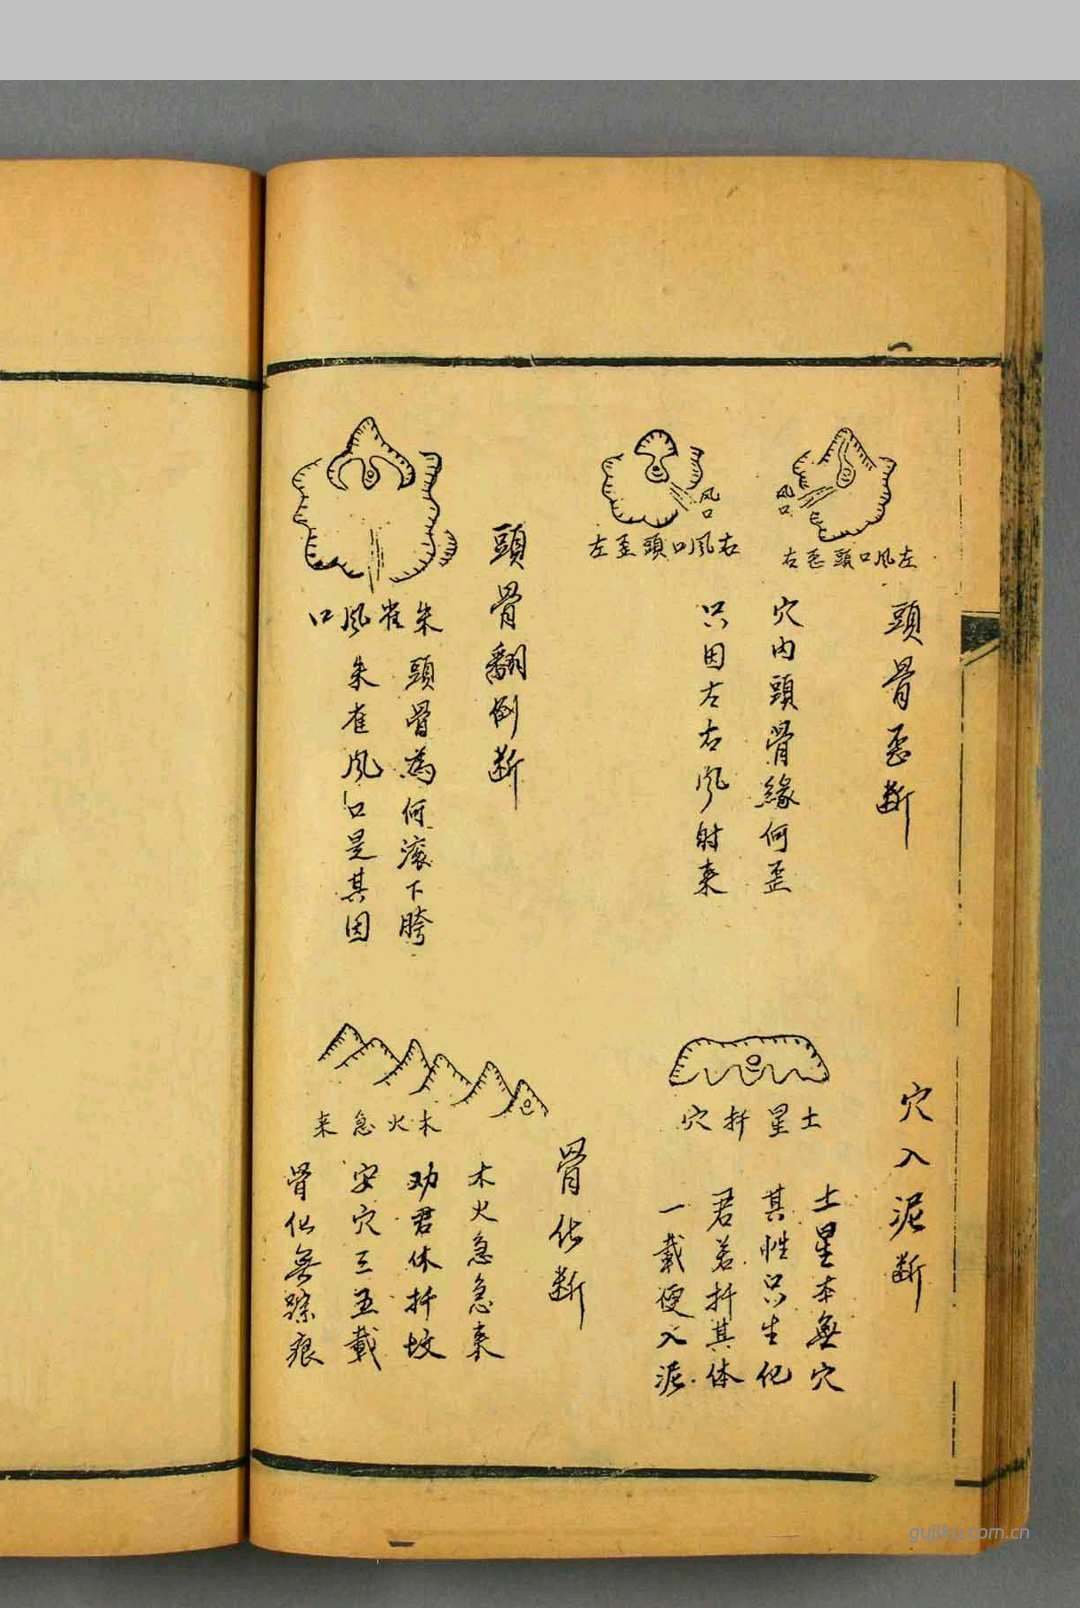 頭骨歪断
左风口頭歪右
风口
右风口頭歪左
风口
穴内頭骨緣何歪
只因左右风射来
頭骨翻倒断
朱雀风口
頭骨為何滚下胯
朱雀风口是其因
穴入泥断
土星扦穴
土星本無穴
其性只生化
君若扦其体
一載便入泥
骨化断
木火急来
木火急急来
劝君休扦坟
安穴三五載
骨化無踪痕
gujiku.com.cn